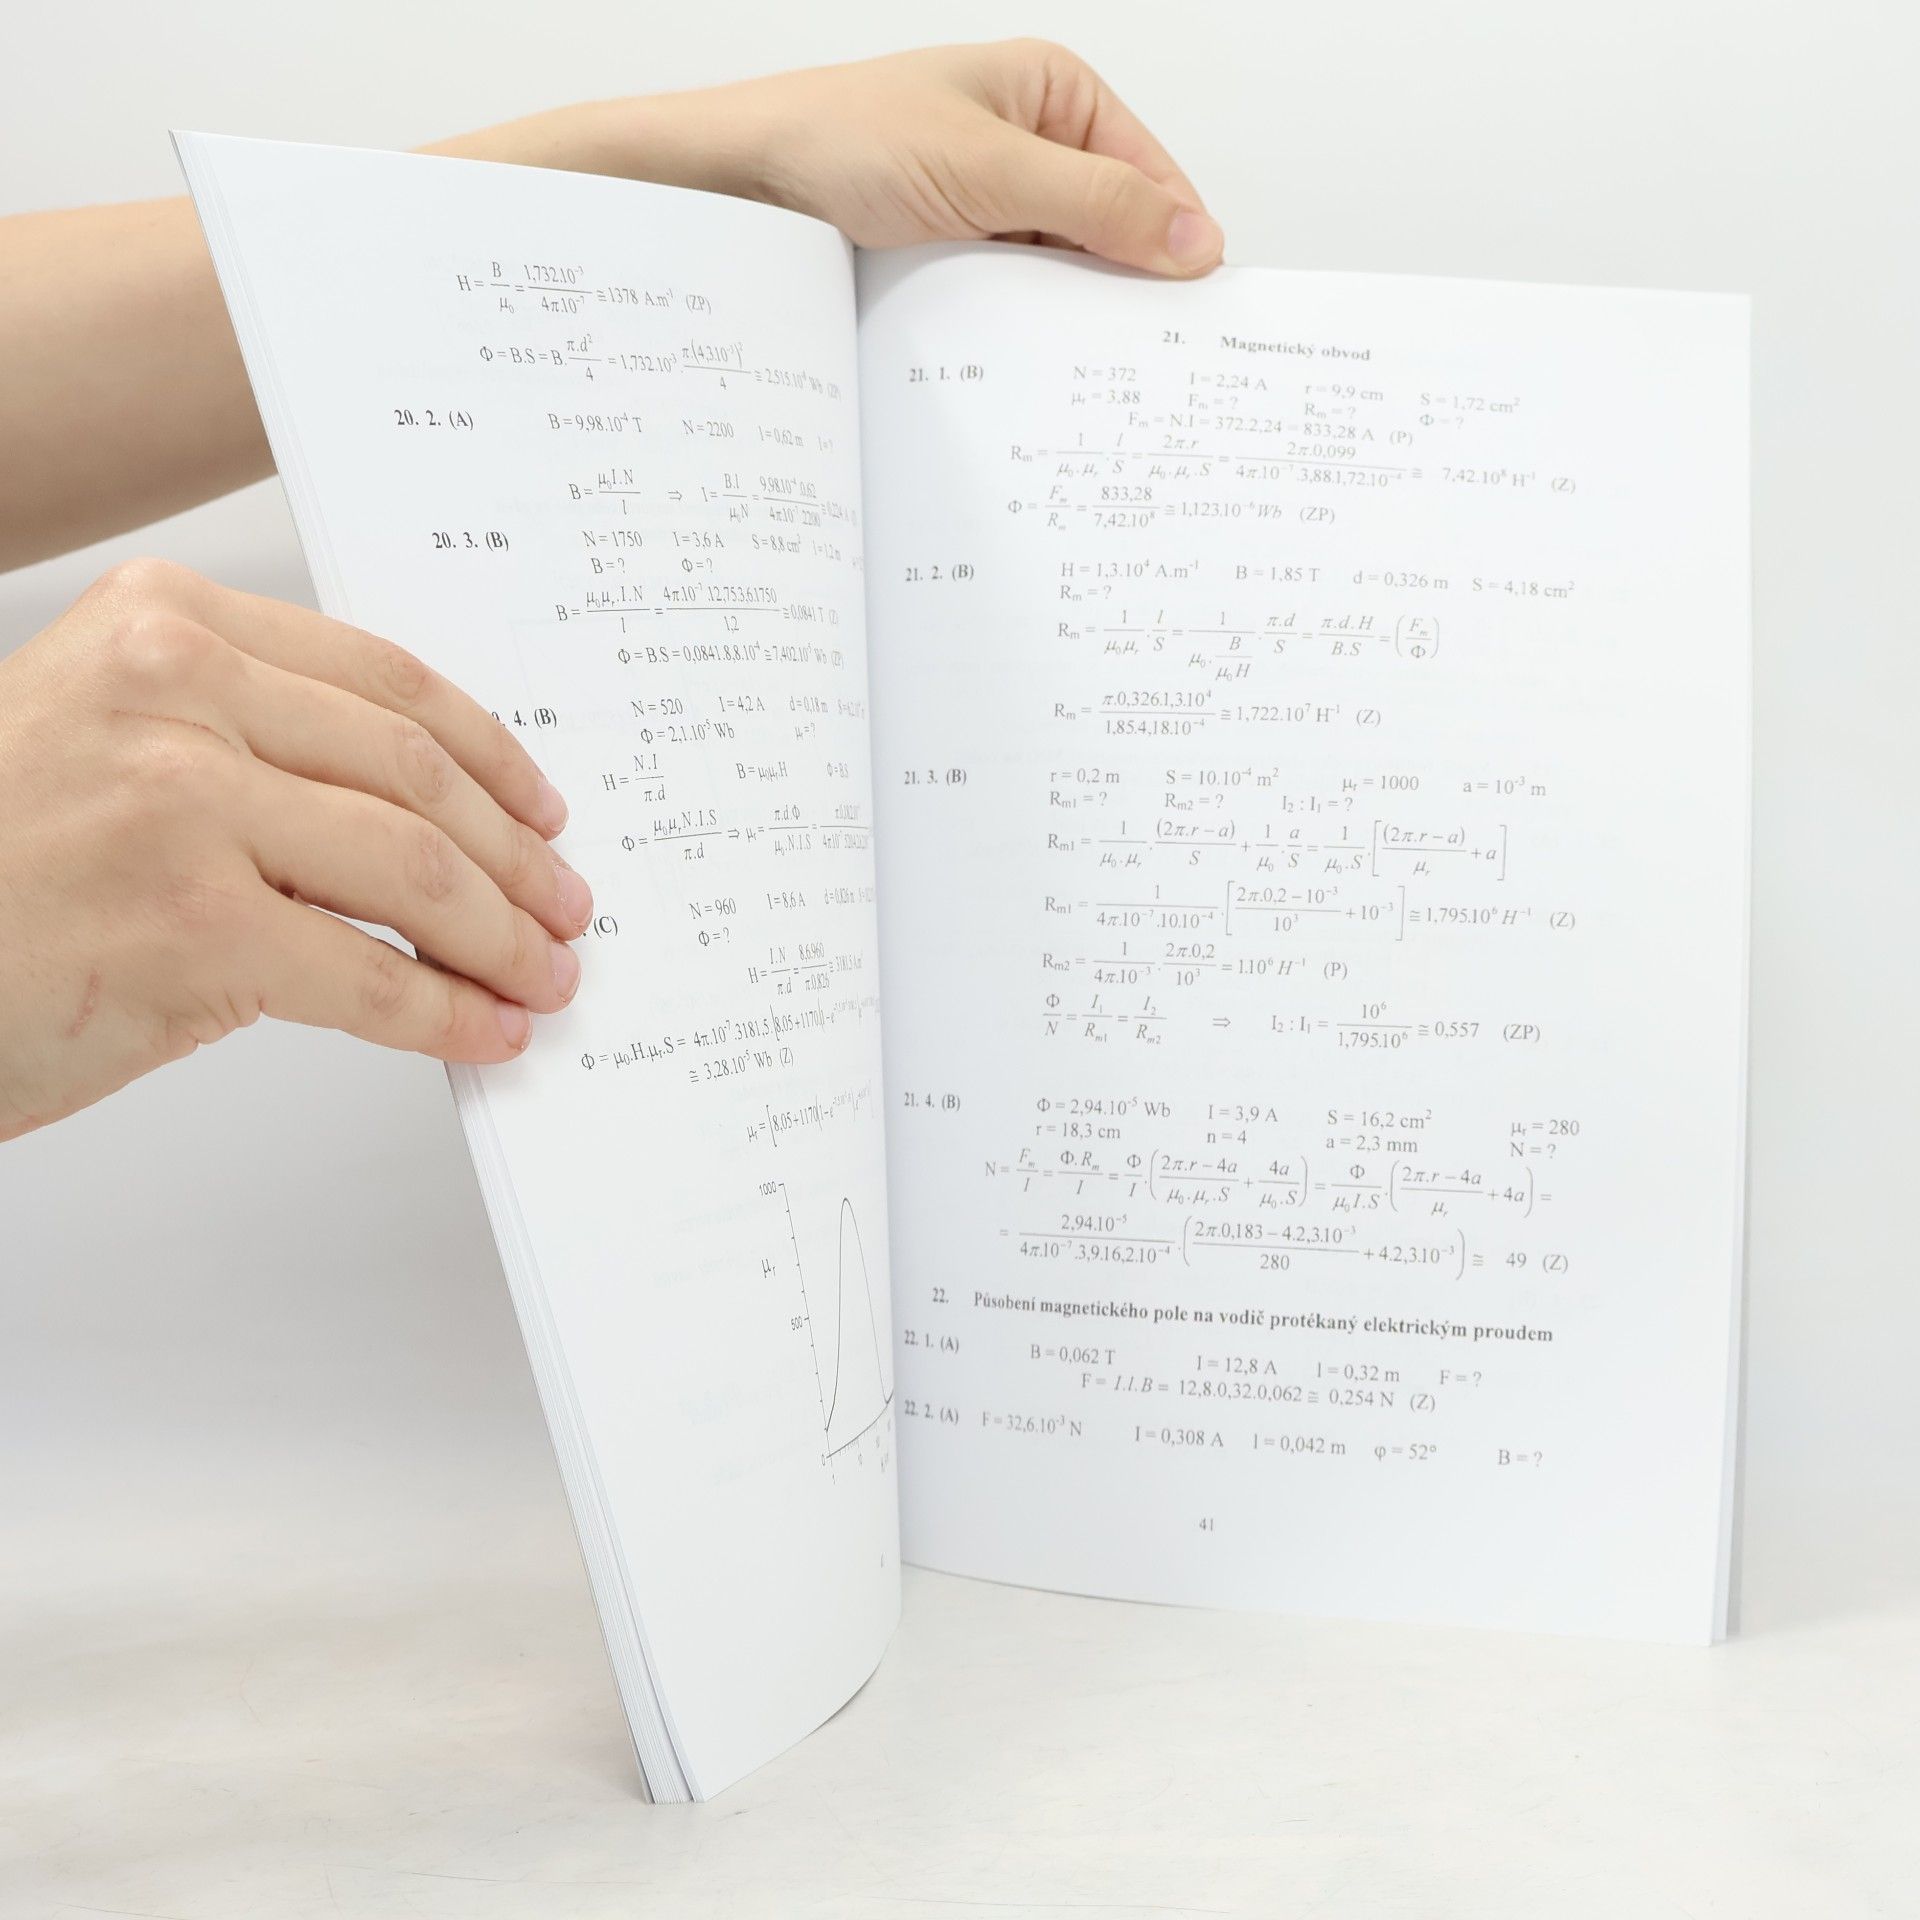 H = B/μ₀ = 1,732.10⁻³/4π.10⁻⁷ ≅ 1378 A.m⁻¹ (ZP)
Φ = B.S = B.π.d²/4 = 1,732.10³.π.(4,3.10⁻³)²/4 ≅ 2,515.10⁻⁸ Wb (ZP)
20. 2. (A) B = 9,98.10⁻⁴ T N = 2200 l = 0,62 m I = ?
B = μ₀I.N/l ⇒ I = B.l/μ₀N = 9,98.10⁻⁴.0,62/4π.10⁻⁷.2200
20. 3. (B) N = 1750 I = 3,6 A S = 8,8 cm² l = 1,2 m
B = ? Φ = ?
B = μ₀μᵣ.I.N/l = 4π.10⁻⁷.12,75.3,6.1750/1,2 ≅ 0,0841 T (Z)
Φ = B.S = 0,0841.8,8.10⁻⁴ ≅ 7,402.10⁻⁵ Wb (ZP)
4. (B) N = 520 I = 4,2 A d = 0,18 m
Φ = 2,1.10⁻⁵ Wb μᵣ = ?
H = N.I/π.d B = μ₀μᵣH Φ = B.S
Φ = μ₀μᵣN.I.S/π.d ⇒ μᵣ = π.d.Φ/μ₀.N.I.S =
. (C) N = 960 I = 8,6 A d = 0,826 m
Φ = ?
H = I.N/π.d = 8,6.960/π.0,826 ≅ 3181,5 A.m⁻¹
Φ = μ₀.H.μᵣ.S = 4π.10⁻⁷.3181,5.[8,05+1170(1−e
≅ 3,28.10⁻⁵ Wb (Z)
μᵣ = [8,05+1170(1−e
1000
μᵣ
500
0
1 10
21. Magnetický obvod
21. 1. (B) N = 372 I = 2,24 A r = 9,9 cm S = 1,72 cm²
μᵣ = 3,88 Fₘ = ? Rₘ = ? Φ = ?
Fₘ = N.I = 372.2,24 = 833,28 A (P)
Rₘ = 1/μ₀.μᵣ . l/S = 2π.r/μ₀.μᵣ.S = 2π.0,099/4π.10⁻⁷.3,88.1,72.10⁻⁴ ≅ 7,42.10⁸ H⁻¹ (Z)
Φ = Fₘ/Rₘ = 833,28/7,42.10⁸ ≅ 1,123.10⁻⁶ Wb (ZP)
21. 2. (B) H = 1,3.10⁴ A.m⁻¹ B = 1,85 T d = 0,326 m S = 4,18 cm²
Rₘ = ?
Rₘ = 1/μ₀μᵣ . l/S = 1/(μ₀.B/μ₀H) . π.d/S = π.d.H/B.S = (Fₘ/Φ)
Rₘ = π.0,326.1,3.10⁴/1,85.4,18.10⁻⁴ ≅ 1,722.10⁷ H⁻¹ (Z)
21. 3. (B) r = 0,2 m S = 10.10⁻⁴ m² μᵣ = 1000 a = 10⁻³ m
Rₘ₁ = ? Rₘ₂ = ? I₂ : I₁ = ?
Rₘ₁ = 1/μ₀.μᵣ . (2π.r − a)/S + 1/μ₀ . a/S = 1/μ₀.S . [(2π.r − a)/μᵣ + a]
Rₘ₁ = 1/4π.10⁻⁷.10.10⁻⁴ . [2π.0,2 − 10⁻³/10³ + 10⁻³] ≅ 1,795.10⁶ H⁻¹ (Z)
Rₘ₂ = 1/4π.10⁻³ . 2π.0,2/10³ = 1.10⁶ H⁻¹ (P)
Φ/N = I₁/Rₘ₁ = I₂/Rₘ₂ ⇒ I₂ : I₁ = 10⁶/1,795.10⁶ ≅ 0,557 (ZP)
21. 4. (B) Φ = 2,94.10⁻⁵ Wb I = 3,9 A S = 16,2 cm² μᵣ = 280
r = 18,3 cm n = 4 a = 2,3 mm N = ?
N = Fₘ/I = Φ.Rₘ/I = Φ/I . (2π.r − 4a/μ₀.μᵣ.S + 4a/μ₀.S) = Φ/μ₀I.S . (2π.r − 4a/μᵣ + 4a) =
= 2,94.10⁻⁵/4π.10⁻⁷.3,9.16,2.10⁻⁴ . (2π.0,183 − 4.2,3.10⁻³/280 + 4.2,3.10⁻³) ≅ 49 (Z)
22. Působení magnetického pole na vodič protékaný elektrickým proudem
22. 1. (A) B = 0,062 T I = 12,8 A l = 0,32 m F = ?
F = I.l.B = 12,8.0,32.0,062 ≅ 0,254 N (Z)
22. 2. (A) F = 32,6.10⁻³ N I = 0,308 A l = 0,042 m φ = 52° B = ?
41